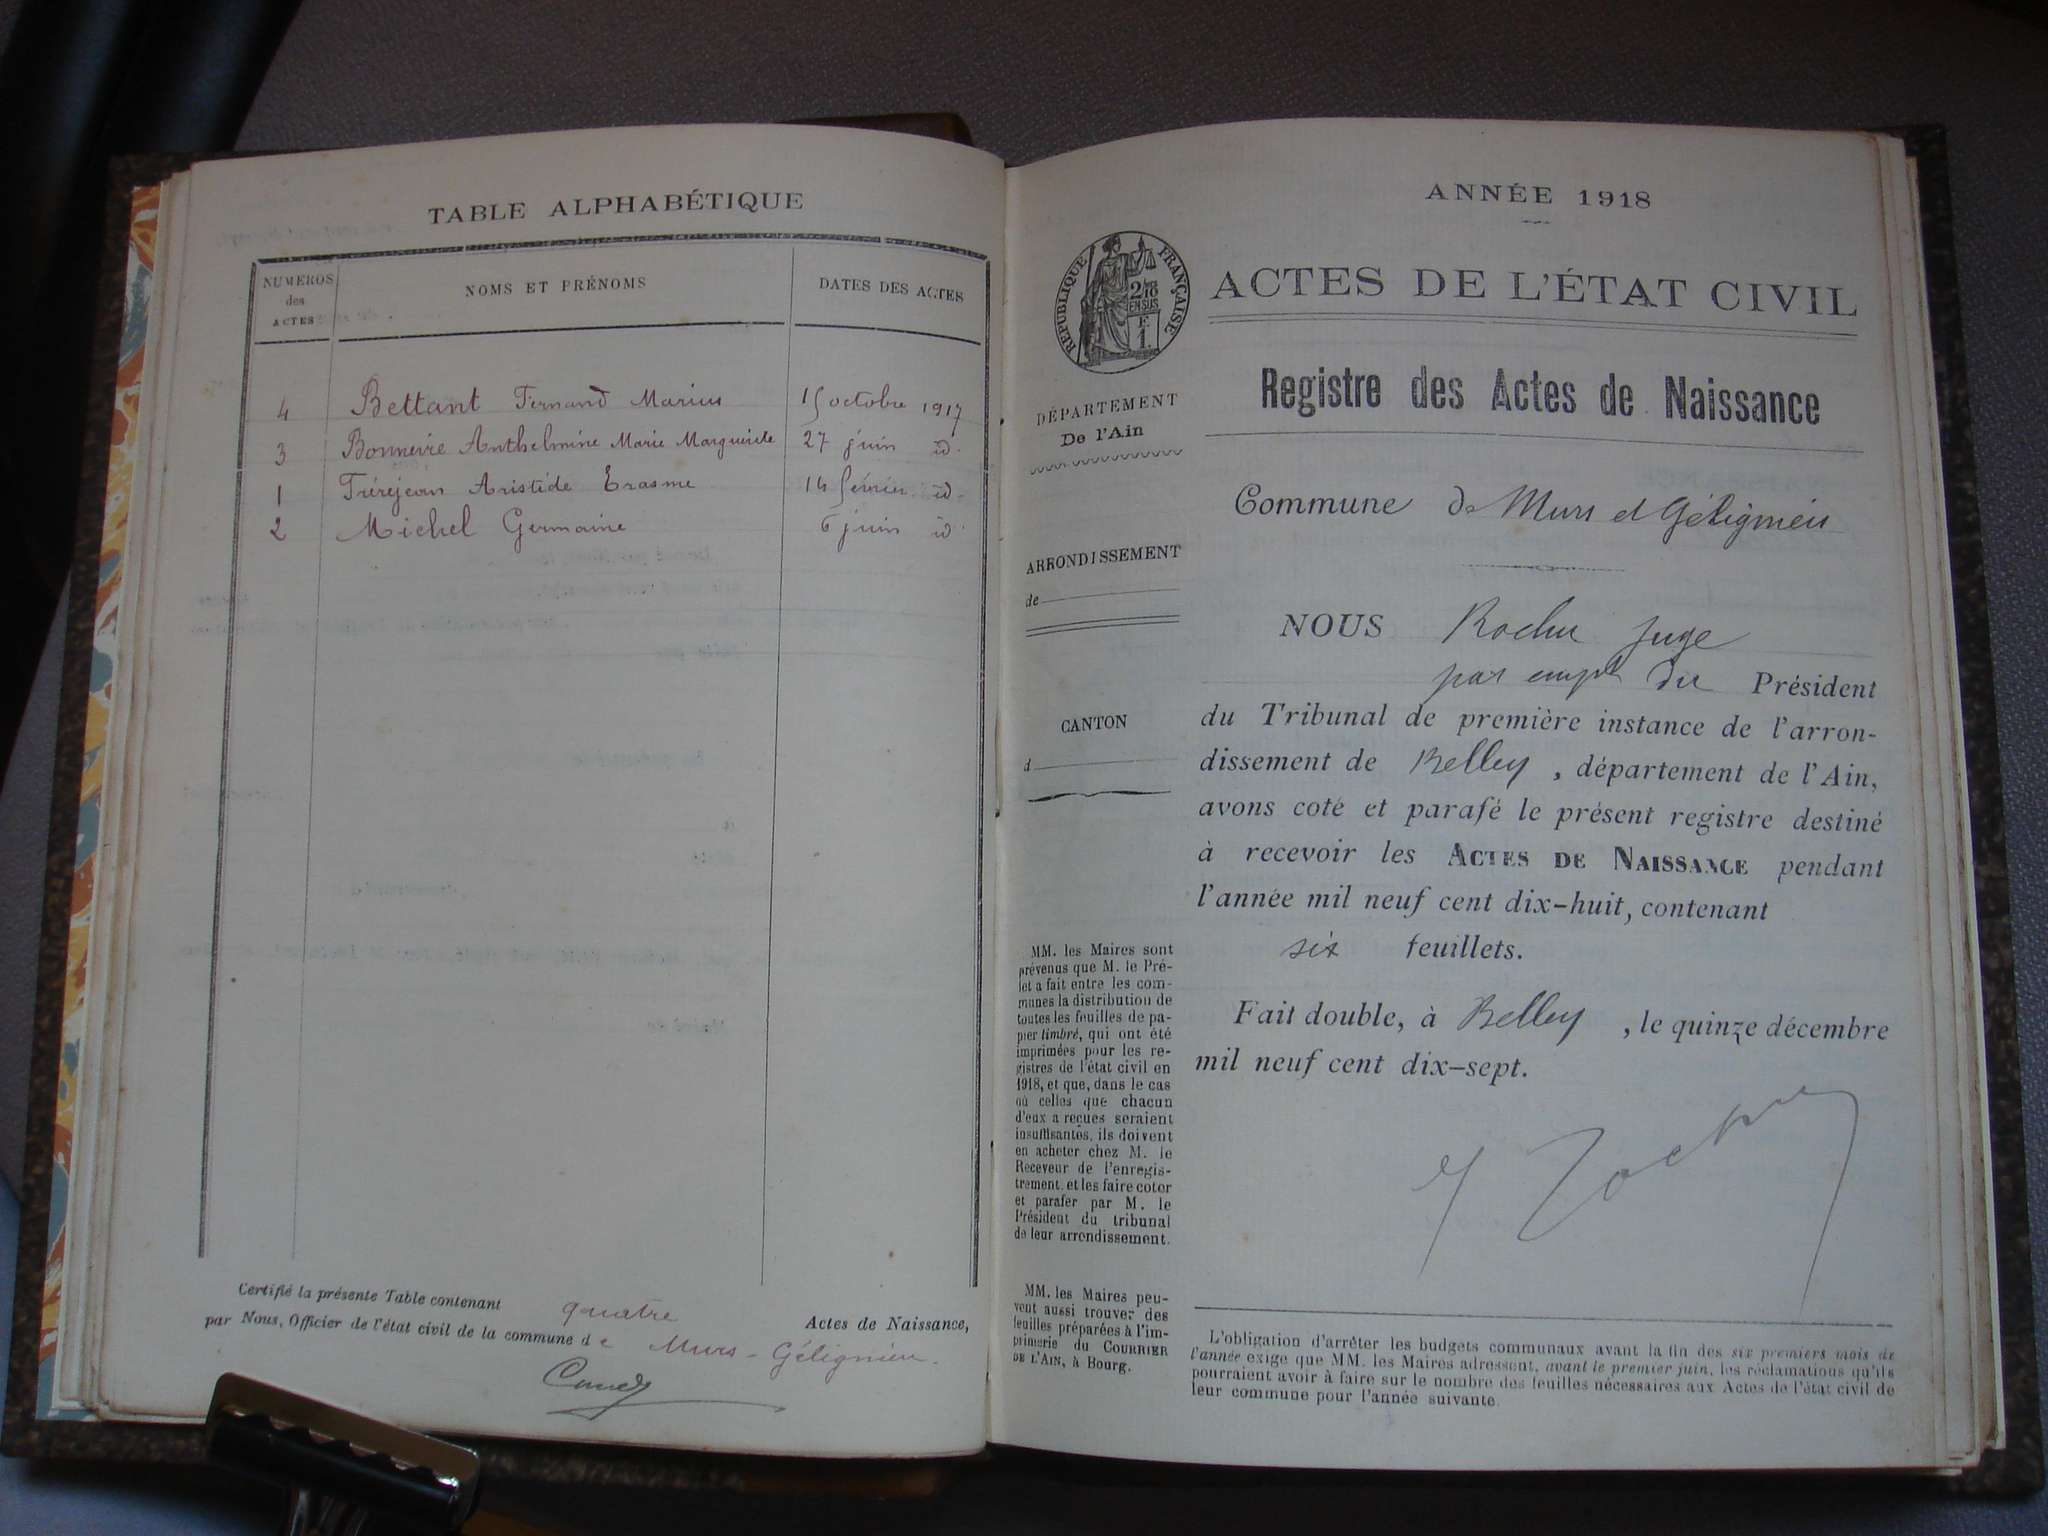 TABLE ALPHABÉTIQUE
NUMEROS
des
ACTES
NOMS ET PRÉNOMS
DATES DES ACTES
4 Bettant Fernand Marius 15 octobre 1917
3 Bonnevie Anthelmine Marie Marguerite 27 juin id.
1 Fréréjean Aristide Erasme 14 février id.
2 Michel Germaine 6 juin id.
Certifié la présente Table contenant quatre Actes de Naissance,
par Nous, Officier de l'état civil de la commune de Murs-Gélignieu.
ANNÉE 1918
RÉPUBLIQUE FRANÇAISE
2/10
EN SUS
E
1.
ACTES DE L'ÉTAT CIVIL
Registre des Actes de Naissance
DÉPARTEMENT
De l'Ain
Commune de Murs et Gélignieu
ARRONDISSEMENT
de
NOUS Rochu juge
par empt du Président
du Tribunal de première instance de l'arron-
dissement de Belley, département de l'Ain,
avons coté et parafé le présent registre destiné
à recevoir les ACTES DE NAISSANCE pendant
l'année mil neuf cent dix-huit, contenant
six feuillets.
Fait double, à Belley, le quinze décembre
mil neuf cent dix-sept.
CANTON
d
MM. les Maires sont
prévenus que M. le Pré-
fet a fait entre les com-
munes la distribution de
toutes les feuilles de pa-
pier timbré, qui ont été
imprimées pour les re-
gistres de l'état civil en
1918, et que, dans le cas
où celles que chacun
d'eux a reçues seraient
insuffisantes, ils doivent
en acheter chez M. le
Receveur de l'enregis-
trement, et les faire coter
et parafer par M. le
Président du tribunal
de leur arrondissement.
MM. les Maires peu-
vent aussi trouver des
feuilles préparées à l'im-
primerie du COURRIER
DE L'AIN, à Bourg.
L'obligation d'arrêter les budgets communaux avant la fin des six premiers mois de
l'année exige que MM. les Maires adressent, avant le premier juin, les réclamations qu'ils
pourraient avoir à faire sur le nombre des feuilles nécessaires aux Actes de l'état civil de
leur commune pour l'année suivante.